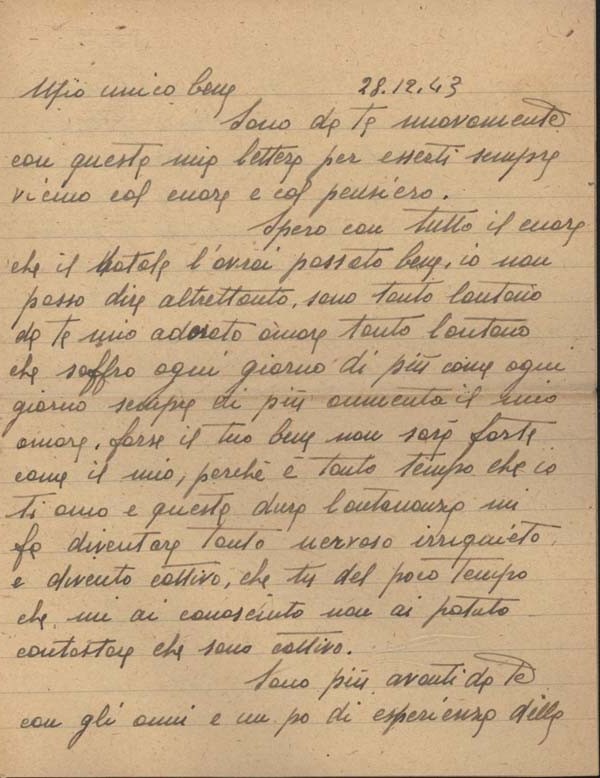 Mio unico bene 28.12.43
Sono da te nuovamente
con questa mia lettera per esserti sempre
vicino col cuore e col pensiero.
Spero con tutto il cuore
che il Natale l'avrai passato bene, io non
posso dire altrettanto, sono tanto lontano
da te mio adorato amore tanto lontano
che soffro ogni giorno di più come ogni
giorno sempre di più aumenta il mio
amore. forse il tuo bene non sarà forte
come il mio, perchè è tanto tempo che io
ti amo e questa dura lontananza mi
fa diventare tanto nervoso irriquieto
e divento cattivo, che tu del poco tempo
che mi ai conosciuto non ai potuto
contastare che sono cattivo.
Sono più avanti da te
con gli anni e un po di esperienza della